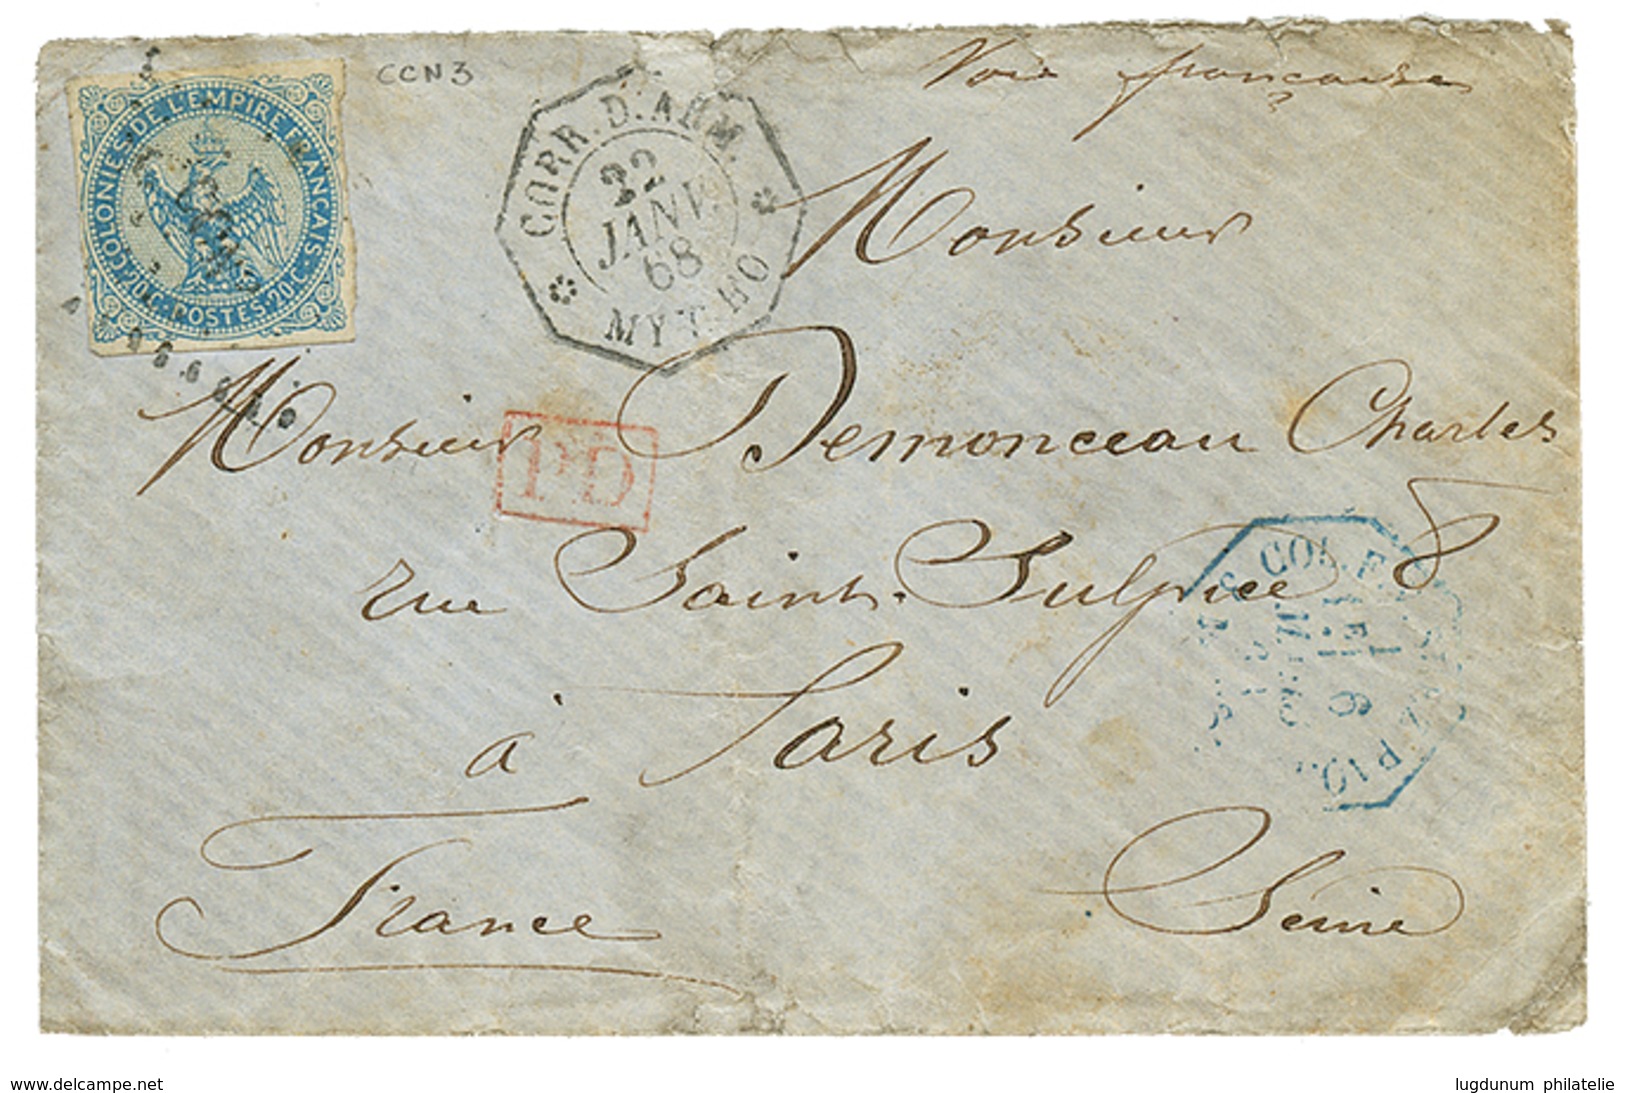 CCN3
Voie française
COLONIES·DE·L'EMPIRE FRANÇAIS·
·20·C·POSTES·20·C·
CORR. D. ARM.
22
JANV.
68
MYT-HO
Monsieur
Monsieur Demonceau Charles
PD
rue Saint-Sulpice 8
à Paris
France Seine
COL. F.
6
www.delcampe.net
lugdunum philatelie